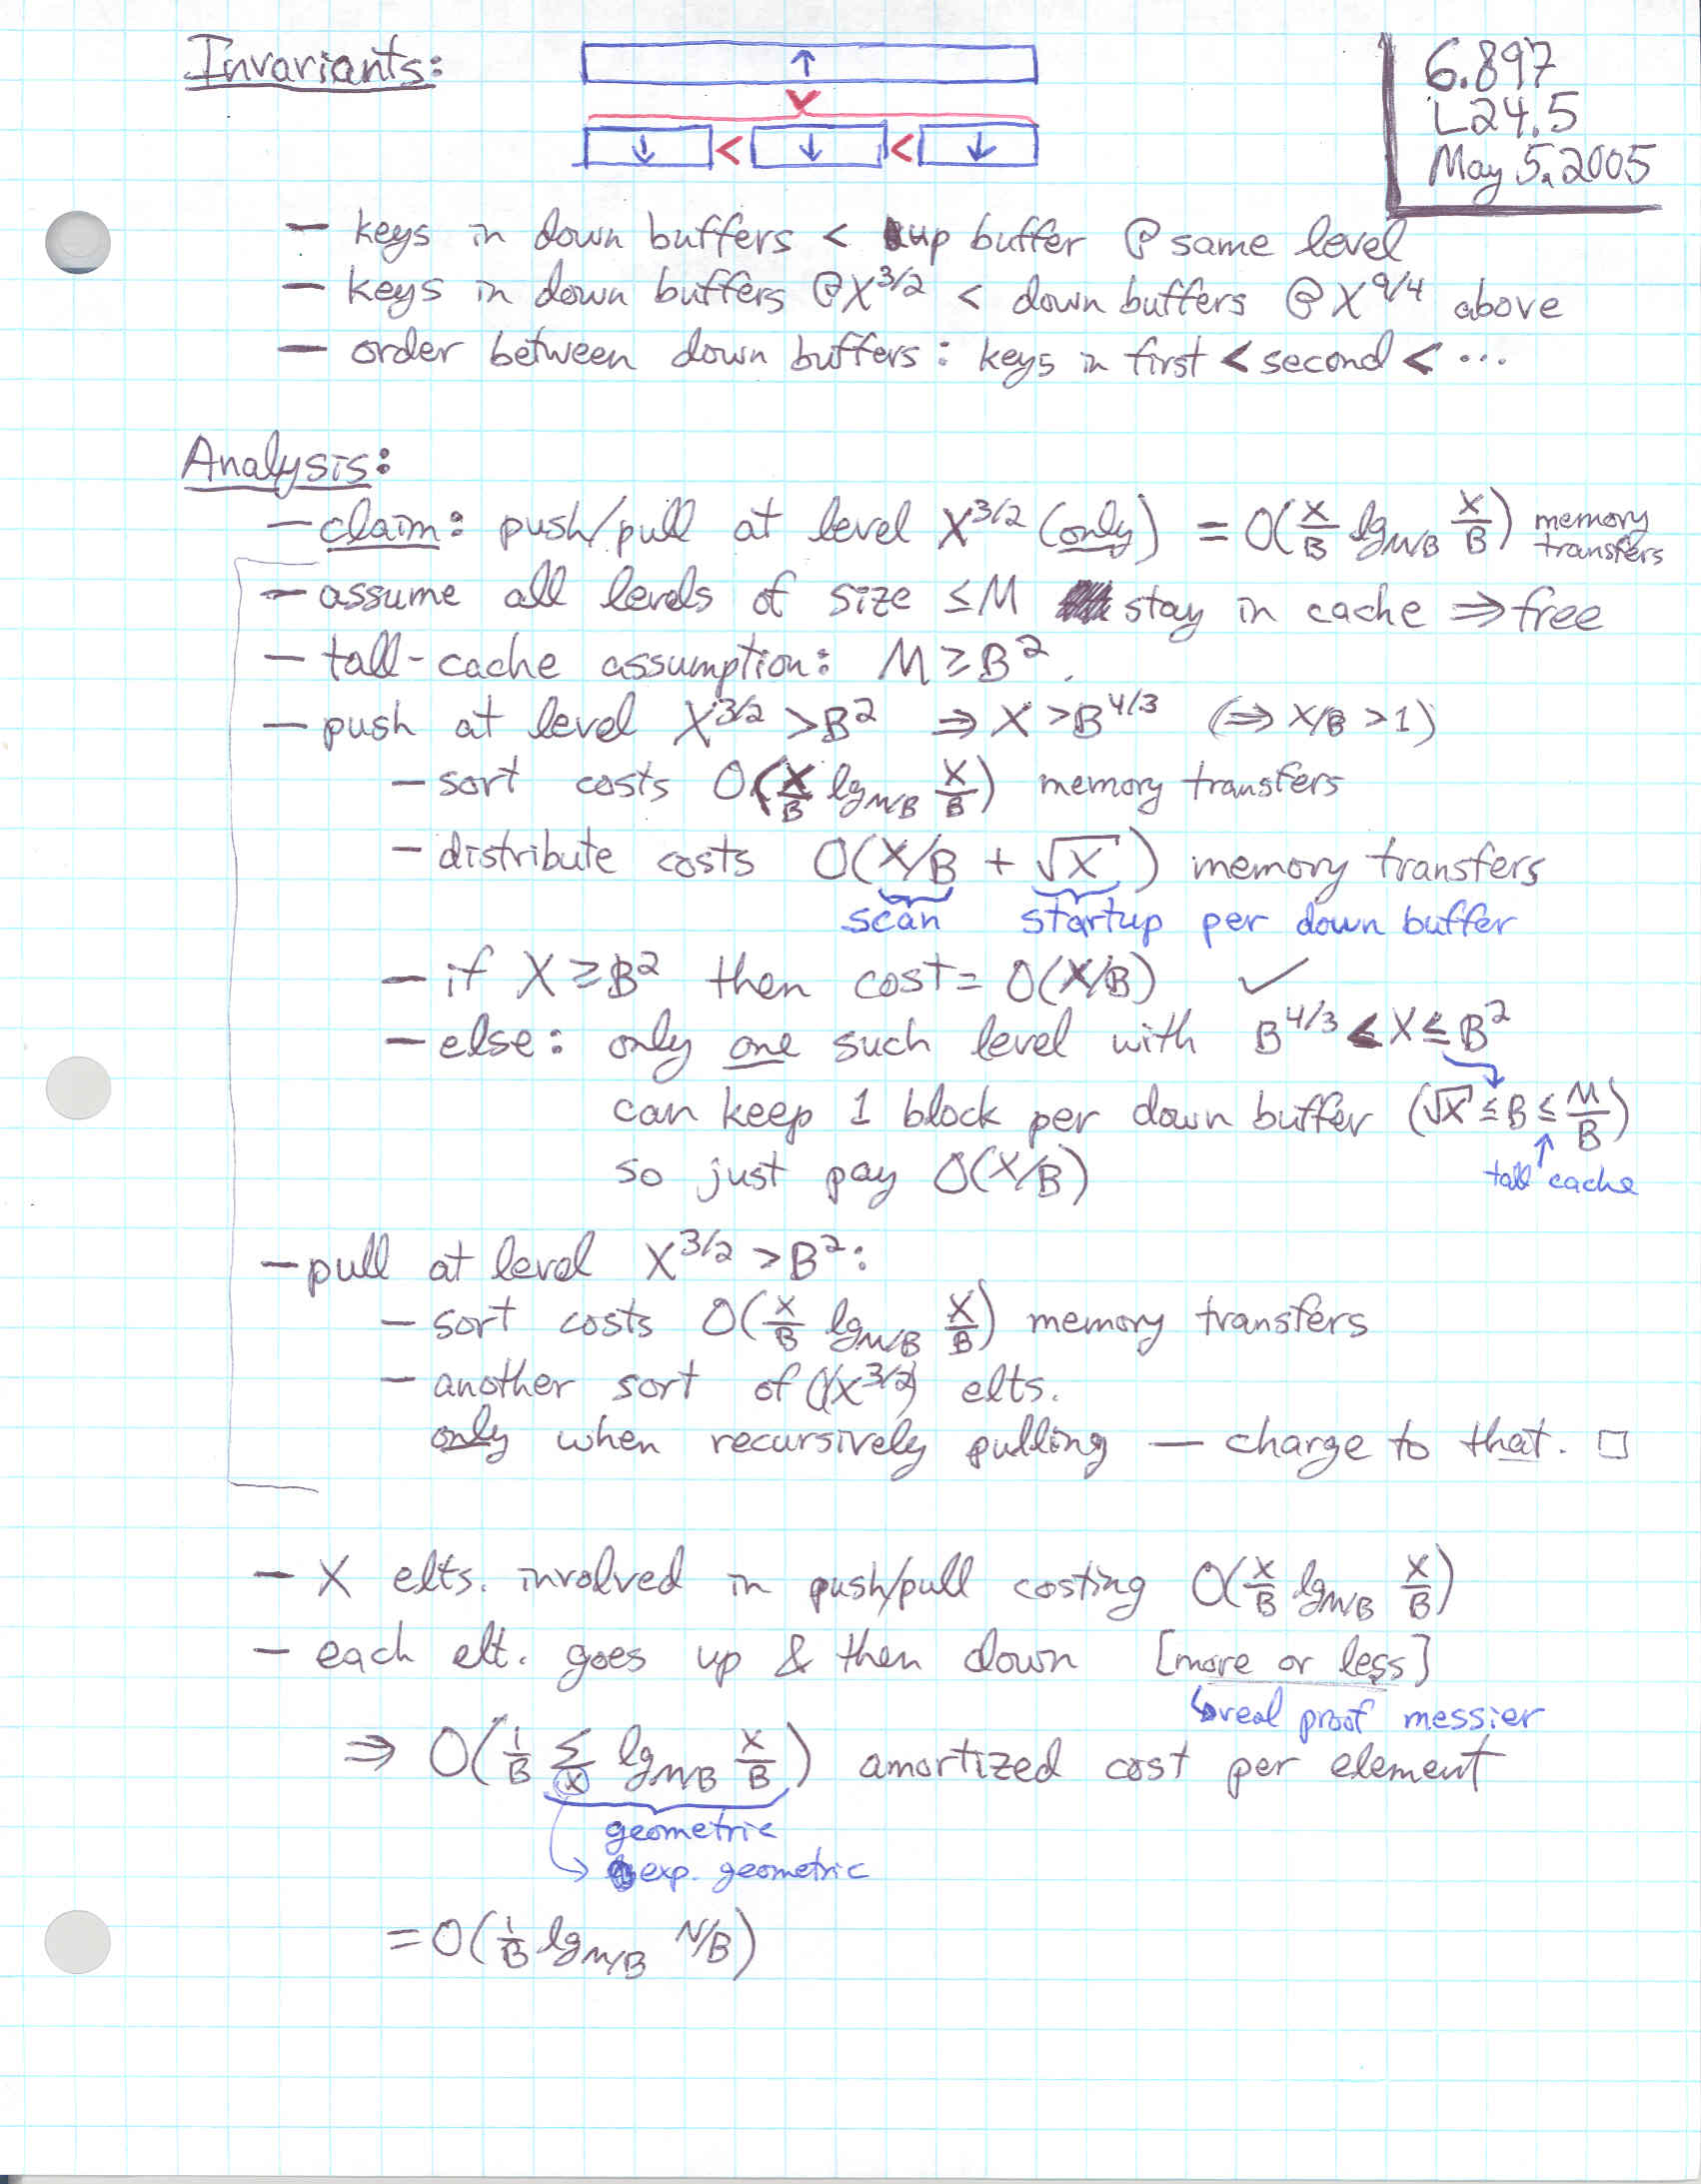 Invariants:
6.897
L24.5
May 5, 2005
↑
∨
↓ < ↓ < ↓
— keys in down buffers < up buffer @ same level
— keys in down buffers @ X^{3/2} < down buffers @ X^{9/4} above
— order between down buffers: keys in first < second < ...
Analysis:
— claim: push/pull at level X^{3/2} (only) = O(X/B lg_{M/B} X/B) memory transfers
— assume all levels of size ≤ M stay in cache ⇒ free
— tall-cache assumption: M ≥ B².
— push at level X^{3/2} > B² ⇒ X > B^{4/3} (⇒ X/B > 1)
— sort costs O(X/B lg_{M/B} X/B) memory transfers
— distribute costs O(X/B + √X) memory transfers
scan startup per down buffer
— if X ≥ B² then cost = O(X/B) ✓
— else: only one such level with B^{4/3} < X ≤ B²
can keep 1 block per down buffer (√X ≤ B ≤ M/B)
↑
tall cache
so just pay O(X/B)
— pull at level X^{3/2} > B²:
— sort costs O(X/B lg_{M/B} X/B) memory transfers
— another sort of O(X^{3/2}) elts.
only when recursively pulling — charge to that. □
— X elts. involved in push/pull costing O(X/B lg_{M/B} X/B)
— each elt. goes up & then down [more or less]
↳ real proof messier
⇒ O(1/B Σ_X lg_{M/B} X/B) amortized cost per element
geometric
↳ exp. geometric
= O(1/B lg_{M/B} N/B)